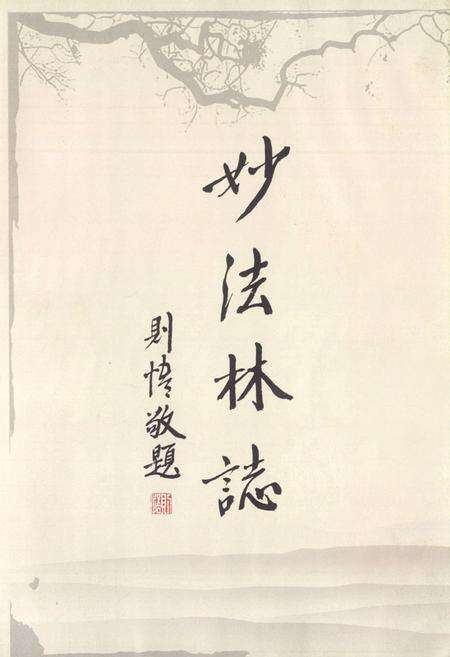 妙法林誌
則悟敬題